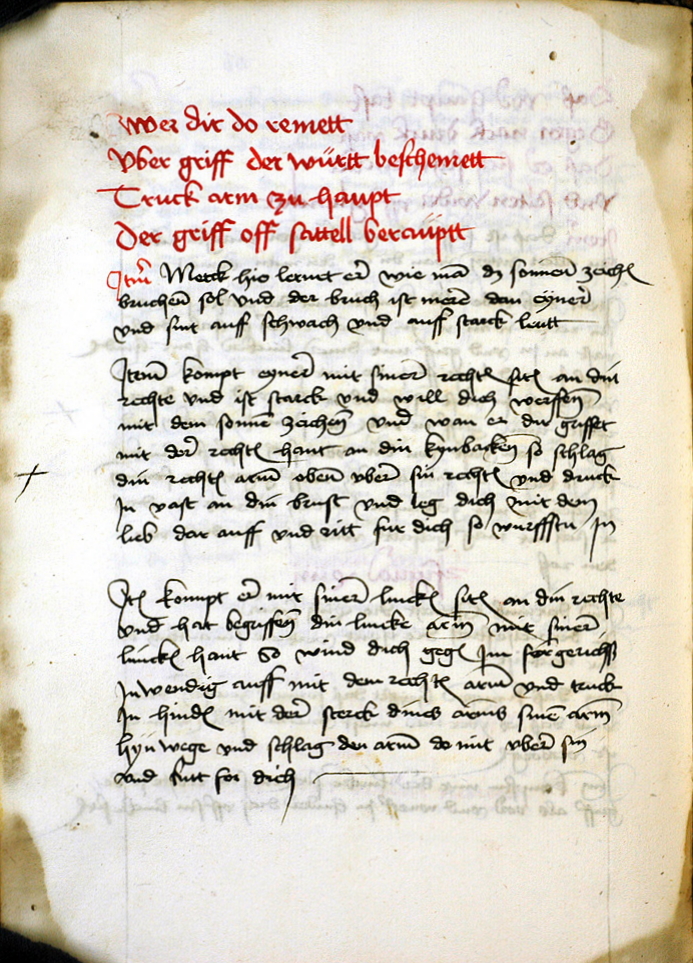 Wer dir do remett
Vber griff der württ beschemett
Truck arm zu haupt
Der griff off sattell berauptt
Itm̄ Merck hie lernet er wie mā dz sonnen zeichē
bruchenn sol vnd der bruch ist mere dan eyner
vnd sint auff schwach vnd auff starck leutt
Item kompt eyner mit siner rechtē sitē an din
rechte vnd ist starck vnd will dich werffenn
mit dem sonnen zeichenn vnd wan er dir griffet
mit der rechtē hant an din kynbacken so schlag
din rechtē arm oben vber sin rechtē vnd druck
In vast an din brust vnd leg dich mit dem
lieb dar auff vnd ritt fur dich so wurffstu In
Itē kompt er mit siner linckē sitē an din rechte
vnd hat begriffen din lincke arm mit siner
linckē hant So wind dich gegē Im
Inwendig auff mit dem rechtē arm vnd truck
In hindē mit der sterck dines arms sinē arm
hyn wege vnd schlag den arm do mit vber sin
vnd ritt for dich